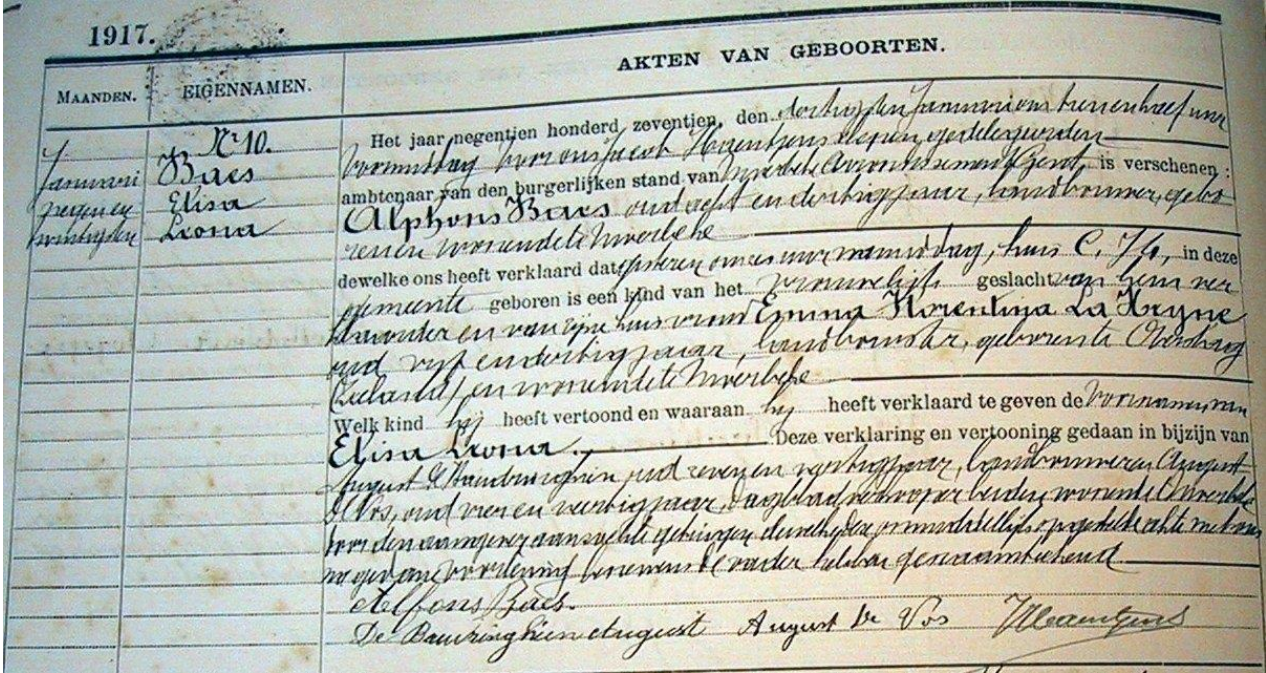 1917.
AKTEN VAN GEBOORTEN.
MAANDEN.
EIGENNAMEN.
Januari
negen en
twintigsten
N<sup>r</sup> 10.
Baes
Elisa
Leona
Het jaar negentien honderd zeventien, den dertigsten Januari om half uur
voormiddag voor ons Jacob
ambtenaar van den burgerlijken stand van Moerbeke Arrondissement Gent, is verschenen:
Alphons Baes oud acht en dertig jaar, landbouwer, gebo
ren en wonende te Moerbeke
dewelke ons heeft verklaard dat gisteren om uur namiddag, huis C. in deze
gemeente geboren is een kind van het vrouwelijk geslacht van hem ver
klaarder en van zijne huisvrouw Emma Florentina La Heyne
oud vijf en dertig jaar, landbouwster, geboren te Overslag
Zeeland) en wonende te Moerbeke
Welk kind hij heeft vertoond en waaraan hij heeft verklaard te geven de voornamen van
Elisa Leona. Deze verklaring en vertooning gedaan in bijzijn van
August De oud zeven en jaar, landbouwer en August
De Vos, oud vier en veertig jaar, dagbladverkooper beiden wonende te Moerbeke
door den aangever aanzochte getuigen dewelke de onmiddellijk opgestelde akte met ons
na gedane voorlezing benevens de vader hebben genaamteekend
Alfons Baes.
August August De Vos